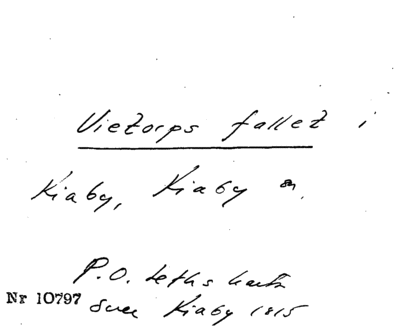 Vietorps fallet i
Kiaby, Kiaby sn.
P.O. Leths karta
Nr 10797
över Kiaby 1815